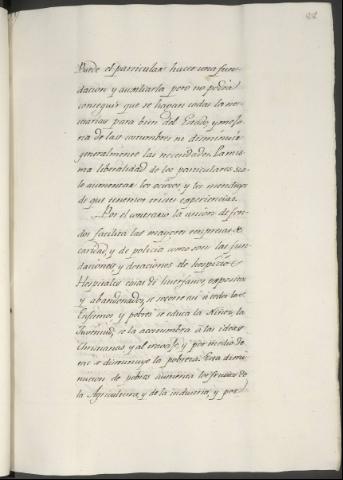 Puede el particular hacer una fun-
dacion y auxiliarla pero no podrá
conseguir que se hagan todas la ne-
cesarias para bien del Estado, y
na de las costumbres ni disminuir
generalmente las necesidades. La mis-
ma liberalidad de los particulares
aumentan los ociosos, y los mendigos
de que tenemos tristes experiencias.
Por el contrario la union de fon-
dos facilita las mayores empresas de
caridad, y de policia como son las fun-
daciones, y dotaciones de hospicios
Hospitales casas de huerfanos, expositos
y abandonados, se socorren a todos los
Enfermos y pobres se educa la Niñez, la
Juventud, se la acostumbra a las ideas
Christianas, y al trabajo, y por medio de
se disminuye la pobreza. Esta dismi-
nucion de pobres aumenta los frutos de
la Agricultura, y de la industria, y por